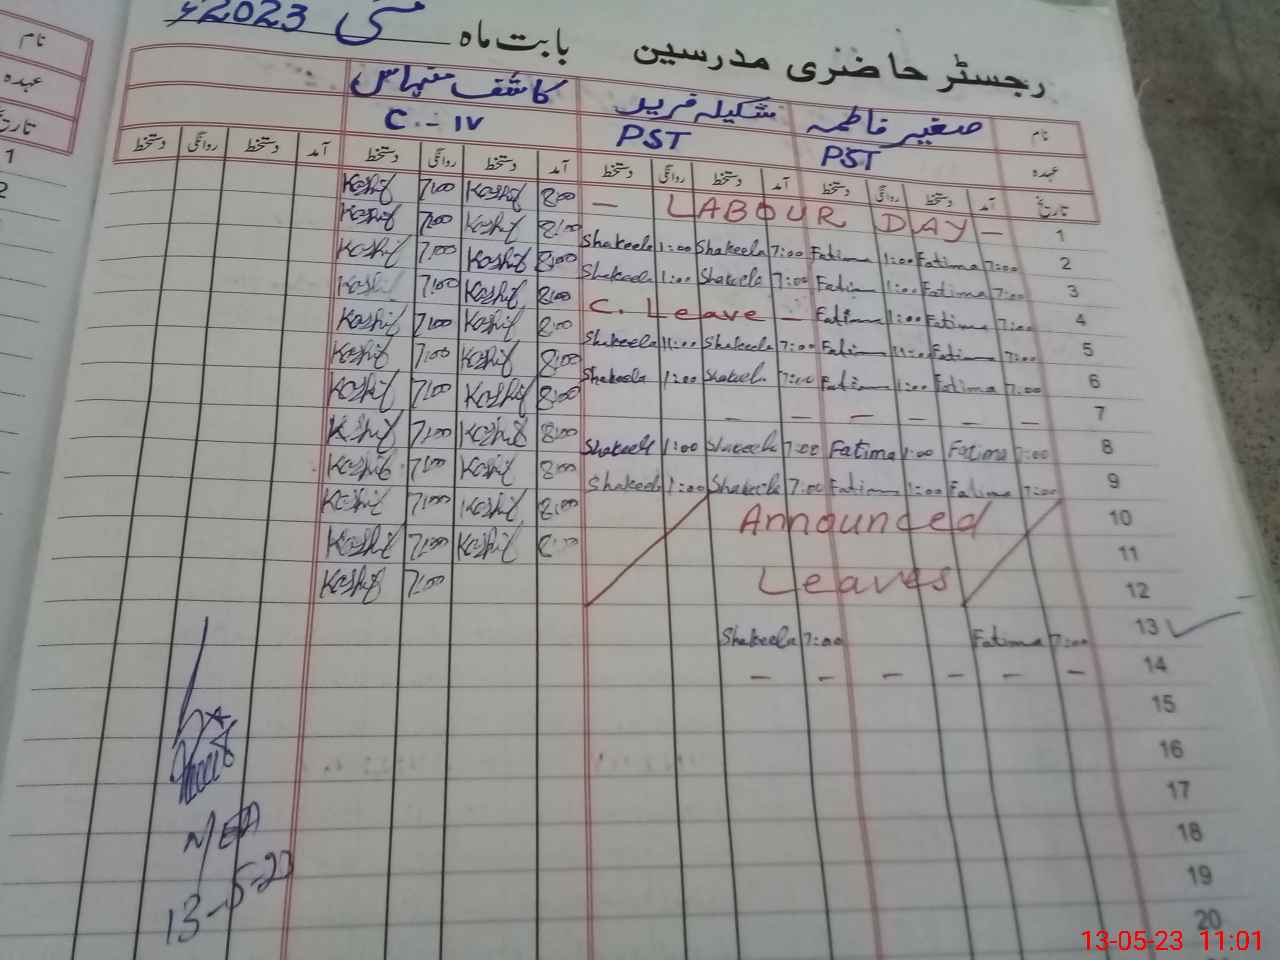 رجسٹر حاضری مدرسین بابت ماہ مئی 2023ء
نام صغیر فاطمہ شکیلہ فرید کاشف منہاس
عہدہ PST PST C-IV
تاریخ آمد دستخط روانگی دستخط آمد دستخط روانگی دستخط آمد دستخط روانگی دستخط آمد دستخط روانگی دستخط
نام
عہدہ
تاریخ
1
2
Kashif 7:00 Kashif 8:00 — LABOUR DAY — 1
Kashif 7:00 Kashif 8:00 Shakeela 1:00 Shakeela 7:00 Fatima 1:00 Fatima 7:00 2
Kashif 7:00 Kashif 8:00 Shakeela 1:00 Shakeela 7:00 Fatima 1:00 Fatima 7:00 3
Kashif 7:00 Kashif 8:00 C. Leave - Fatima 1:00 Fatima 7:00 4
Kashif 7:00 Kashif 8:00 Shakeela 11:00 Shakeela 7:00 Fatima 11:00 Fatima 7:00 5
Kashif 7:00 Kashif 8:00 Shakeela 1:00 Shakeela 7:00 Fatima 1:00 Fatima 7:00 6
Kashif 7:00 Kashif 8:00 — — — — — — 7
Kashif 7:00 Kashif 8:00 Shakeela 1:00 Shakeela 7:00 Fatima 1:00 Fatima 7:00 8
Kashif 7:00 Kashif 8:00 Shakeela 1:00 Shakeela 7:00 Fatima 1:00 Fatima 7:00 9
Kashif 7:00 Kashif 8:00 Announced 10
Kashif 7:00 Kashif 8:00 11
Kashif 7:00 Leaves 12
Shakeela 7:00 Fatima 7:00 13
— — — — — — 14
15
16
17
18
19
20
MEA
13-5-23
13-05-23 11:01